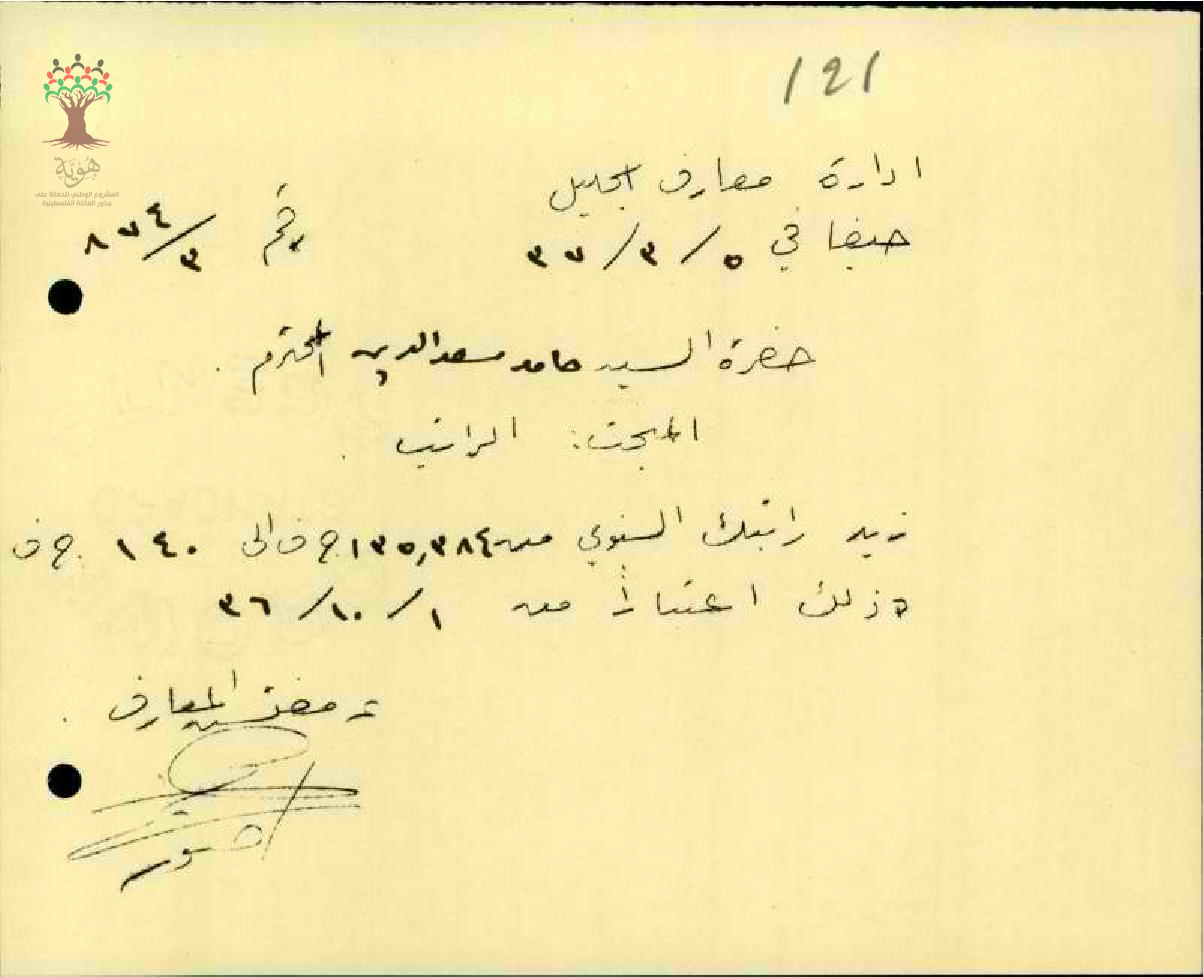 121
هوية
المشروع الوطني للحفاظ على
جذور العائلة الفلسطينية
ادارة معارف الجليل
حيفا في ٥/٣/٣٧ رقم ٣/٨٧٤
حضرة السيد حامد سعد الدين المحترم .
المبحث: الراتب .
زيد راتبك السنوي من ١٣٥,٣٨٤ ج ف الى ١٤٠ ج ف
وذلك اعتباراً من ١/١٠/٣٦
ع مفتش المعارف .